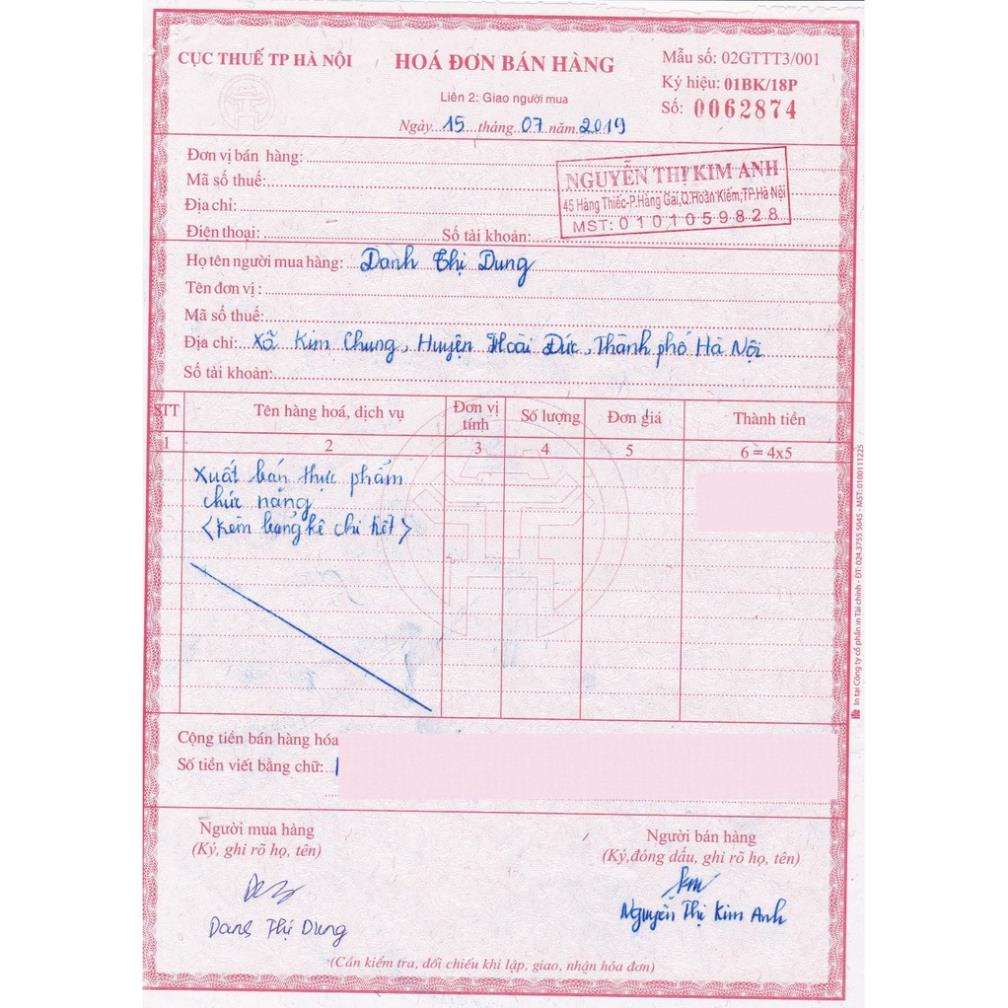 CỤC THUẾ TP HÀ NỘI
HOÁ ĐƠN BÁN HÀNG
Mẫu số: 02GTTT3/001
Ký hiệu: 01BK/18P
Số: 0062874
Liên 2: Giao người mua
Ngày 15 tháng 07 năm 2019
Đơn vị bán hàng:
Mã số thuế:
Địa chỉ:
Điện thoại: Số tài khoản:
NGUYỄN THỊ KIM ANH
45 Hàng Thiếc-P.Hàng Gai,Q.Hoàn Kiếm,TP.Hà Nội
MST: 0101059828
Họ tên người mua hàng: Danh Thị Dung
Tên đơn vị :
Mã số thuế:
Địa chỉ: Xã Kim Chung, Huyện Hoài Đức, Thành phố Hà Nội
Số tài khoản:
STT Tên hàng hoá, dịch vụ Đơn vị tính Số lượng Đơn giá Thành tiền
1 2 3 4 5 6 = 4x5
Xuất bán thực phẩm
chức năng
<Kèm bảng kê chi tiết>
Cộng tiền bán hàng hóa
Số tiền viết bằng chữ:
Người mua hàng
(Ký, ghi rõ họ, tên)
Danh Thị Dung
Người bán hàng
(Ký,đóng dấu, ghi rõ họ, tên)
Nguyễn Thị Kim Anh
(Cần kiểm tra, đối chiếu khi lập, giao, nhận hóa đơn)
In tại Công ty cổ phần in Tài chính - ĐT: 024 3755 5045 - MST: 0100111225